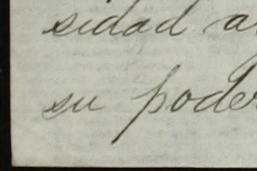 sidad a
su poder